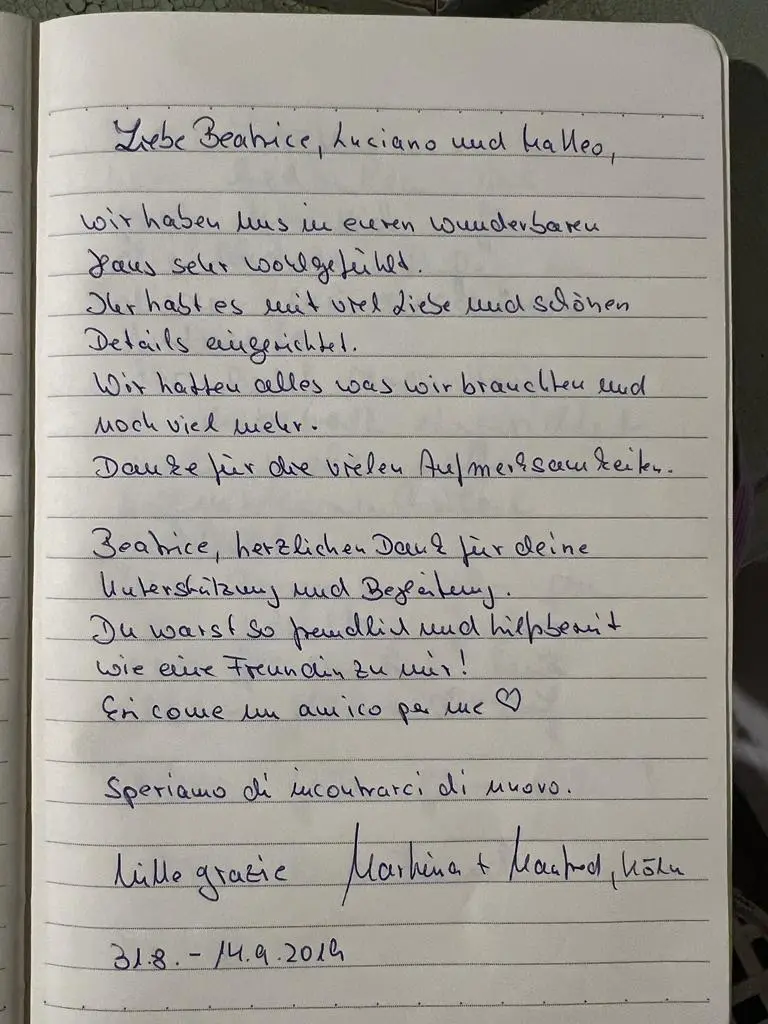 Liebe Beatrice, Luciano und Matteo,
wir haben uns in euren wunderbaren
Haus sehr wohlgefühlt.
Ihr habt es mit viel Liebe und schönen
Details eingerichtet.
Wir hatten alles was wir brauchten und
noch viel mehr.
Danke für die vielen Aufmerksamkeiten.
Beatrice, herzlichen Dank für deine
Unterstützung und Begleitung.
Du warst so freundlich und hilfsbereit
wie eine Freundin zu mir!
Eri come un amico per me ♡
Speriamo di incontrarci di nuovo.
Mille grazie Martina + Manfred, Köln
31.8. - 14.9.2019